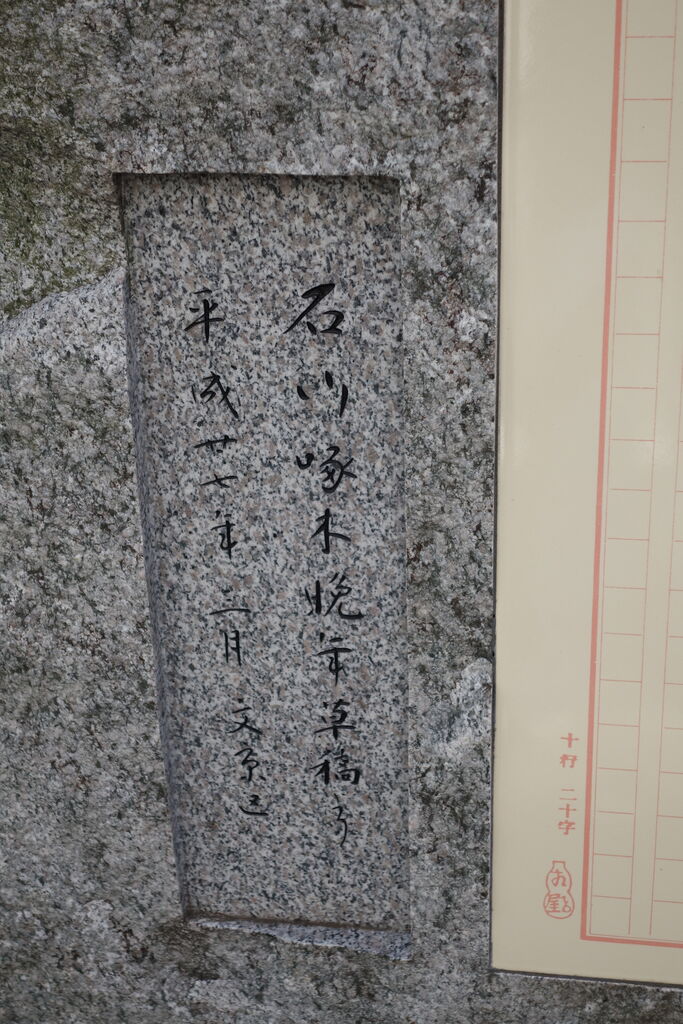 石川啄木晩年草稿ヨリ
平成廿七年二月 文京区
十行 二十字